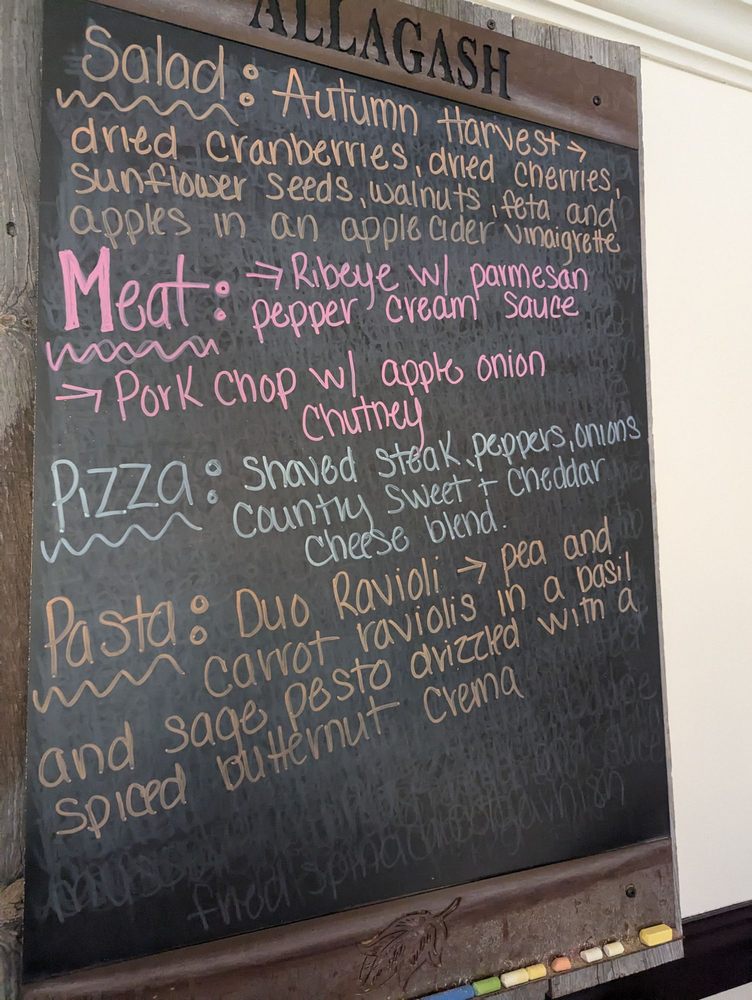 ALLAGASH
Salad: Autumn Harvest →
dried cranberries, dried cherries,
sunflower seeds, walnuts, feta and
apples in an apple cider vinaigrette
Meat: → Ribeye w/ parmesan
pepper cream sauce
→ Pork Chop w/ apple onion
Chutney
Pizza: shaved steak, peppers, onions
country sweet + cheddar
cheese blend.
Pasta: Duo Ravioli → pea and
carrot raviolis in a basil
and sage pesto drizzled with a
spiced butternut crema
fried spinach